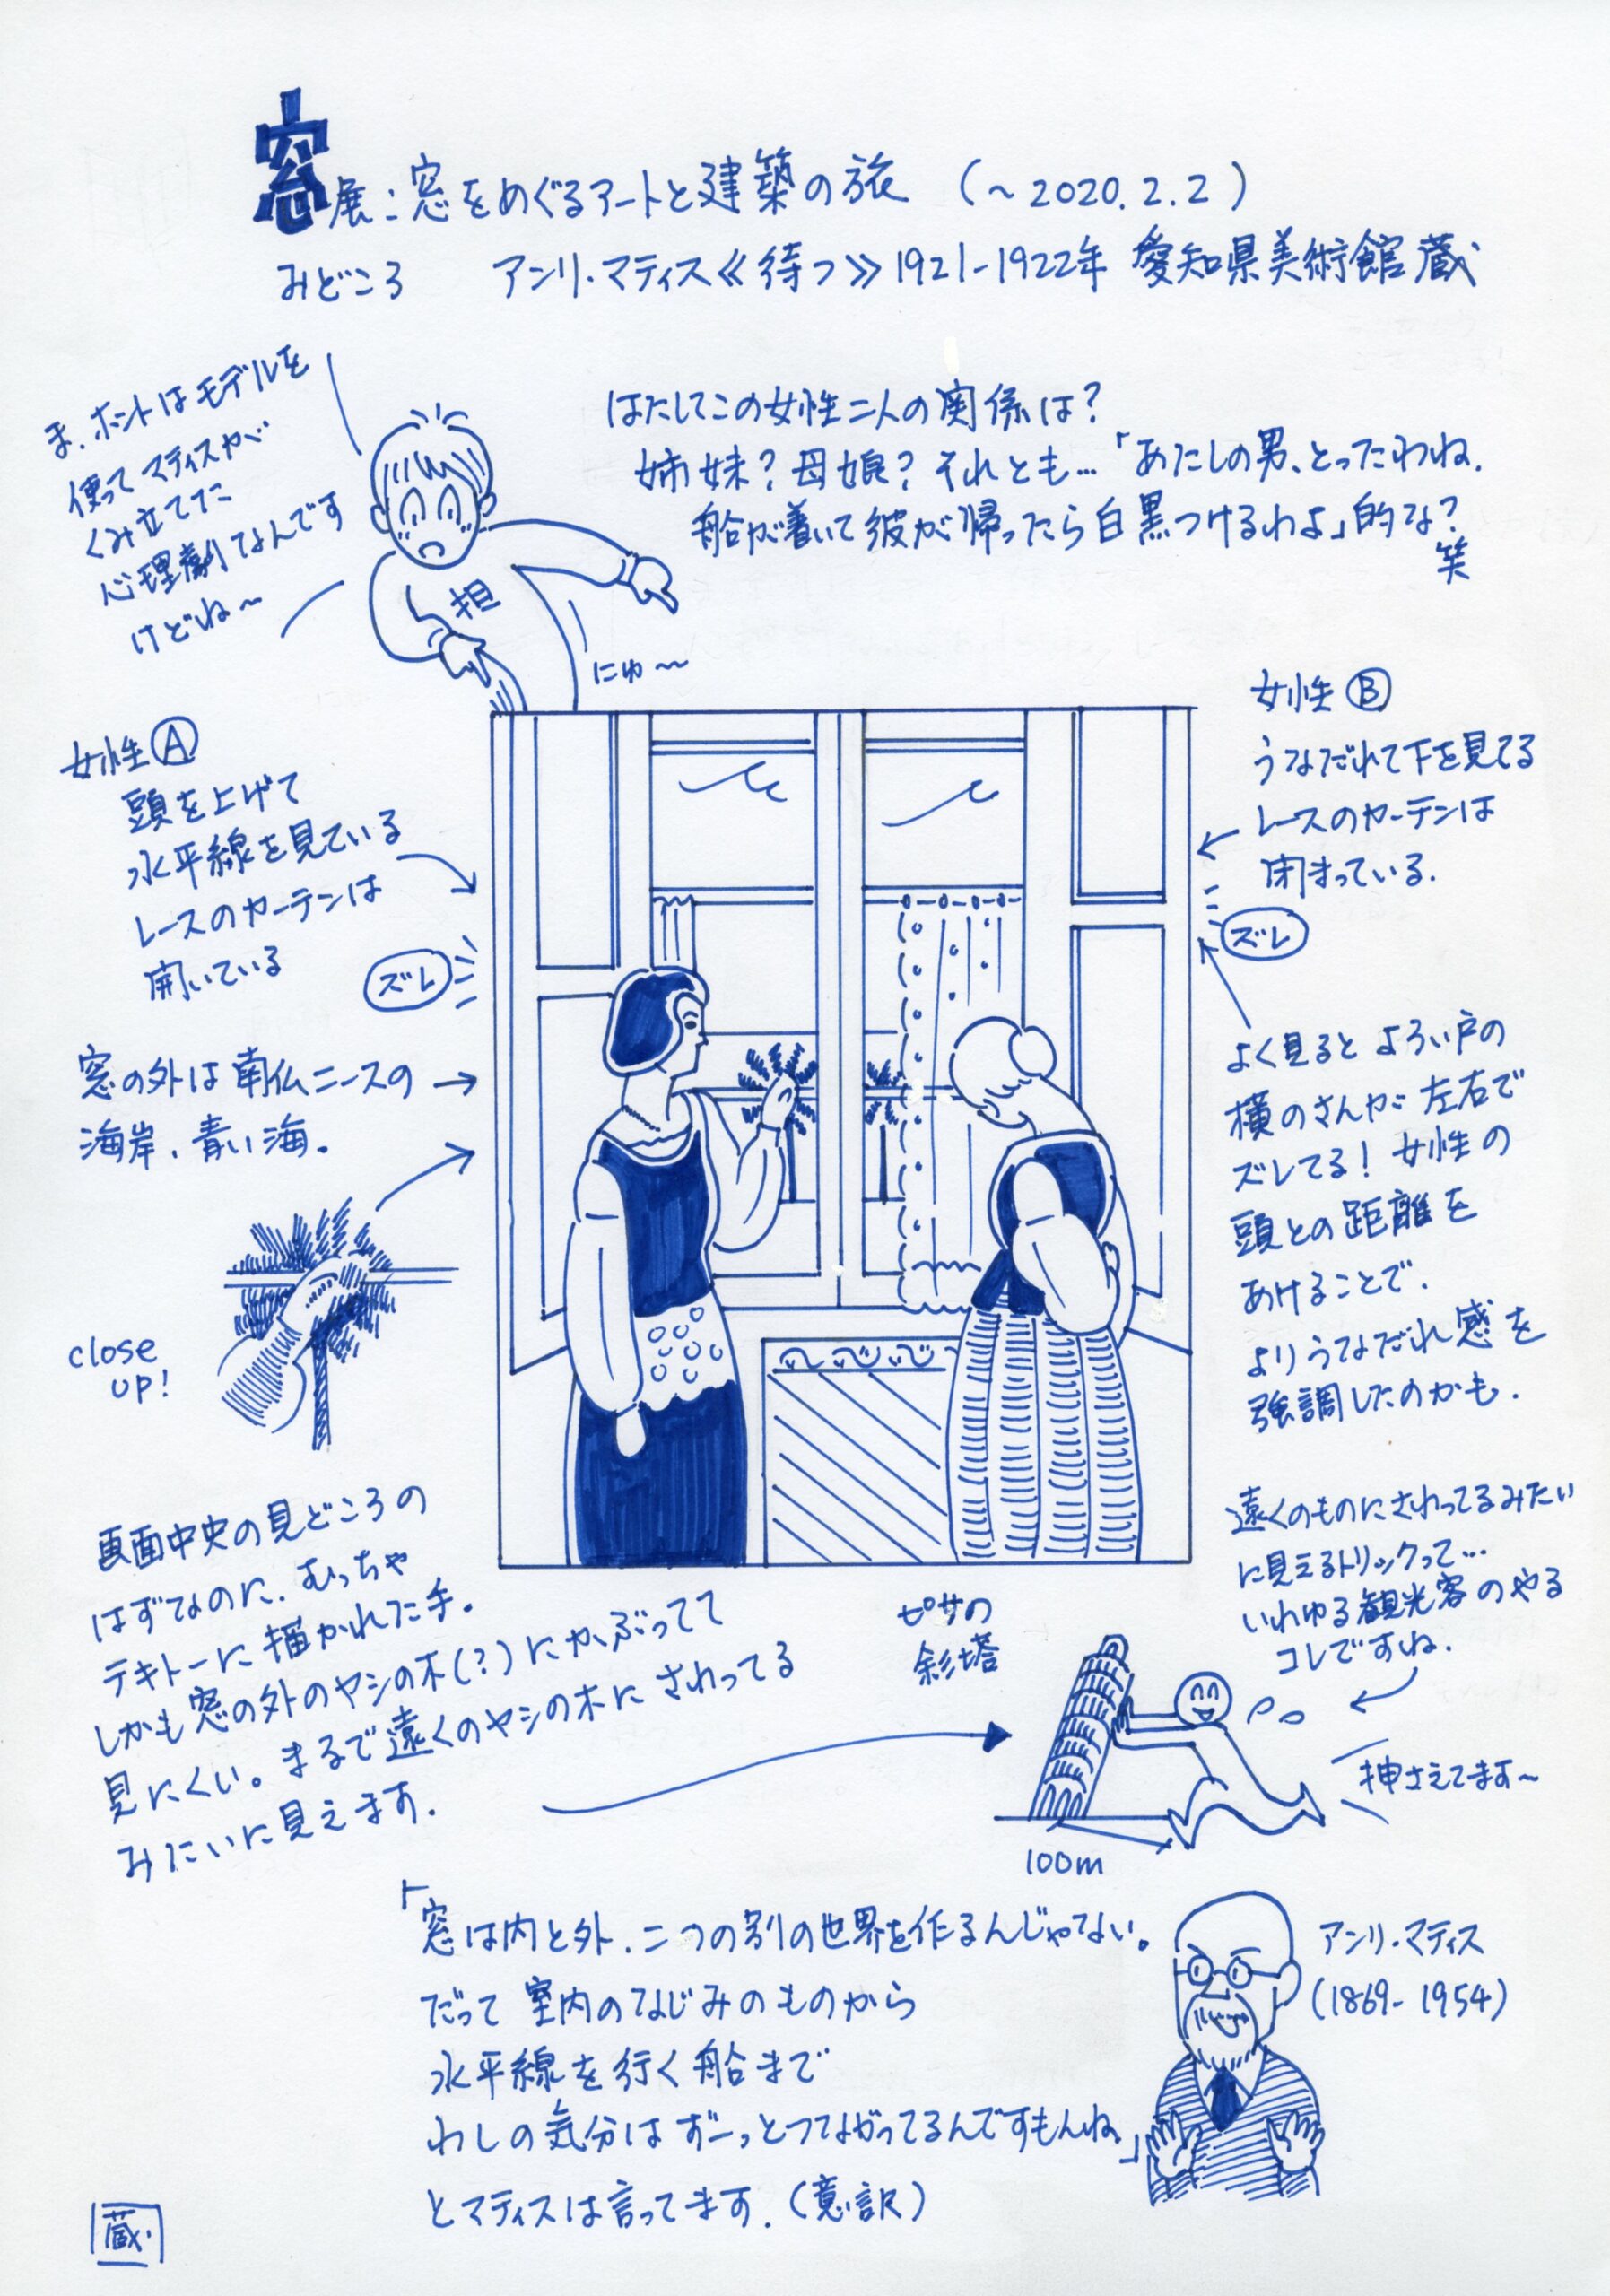 窓展：窓をめぐるアートと建築の旅 （～2020.2.2）
みどころ アンリ・マティス≪待つ≫1921-1922年 愛知県美術館蔵
ま、ホントはモデルを
使ってマティスが
くみ立てた
心理劇なんです
けどね～
はたしてこの女性二人の関係は？
姉妹？母娘？それとも…「あたしの男、とったわね。
船が着いて彼が帰ったら白黒つけるわよ」的な？
笑
担
にゅ～
女性Ⓐ
頭を上げて
水平線を見ている
レースのカーテンは
開いている
ズレ
女性Ⓑ
うなだれて下を見てる
レースのカーテンは
閉まっている.
ズレ
窓の外は南仏ニースの
海岸、青い海。
close
up!
よく見るとよろい戸の
横のさんが左右で
ズレてる！女性の
頭との距離を
あけることで、
よりうなだれ感を
強調したのかも.
画面中央の見どころの
はずなのに、むっちゃ
テキトーに描かれた手。
しかも窓の外のヤシの木(？)にかぶってて
見にくい。まるで遠くのヤシの木にさわってる
みたいに見えます.
遠くのものにさわってるみたい
に見えるトリックって…
いわゆる観光客のやる
コレですね.
ピサの
彩塔
押さえてます～
100m
「窓は内と外、二つの別の世界を作るんじゃない。
だって室内のなじみのものから
水平線を行く船まで
わしの気分はずーっとつながってるんですもんね」
とマティスは言ってます.（意訳）
アンリ・マティス
(1869-1954)
蔵